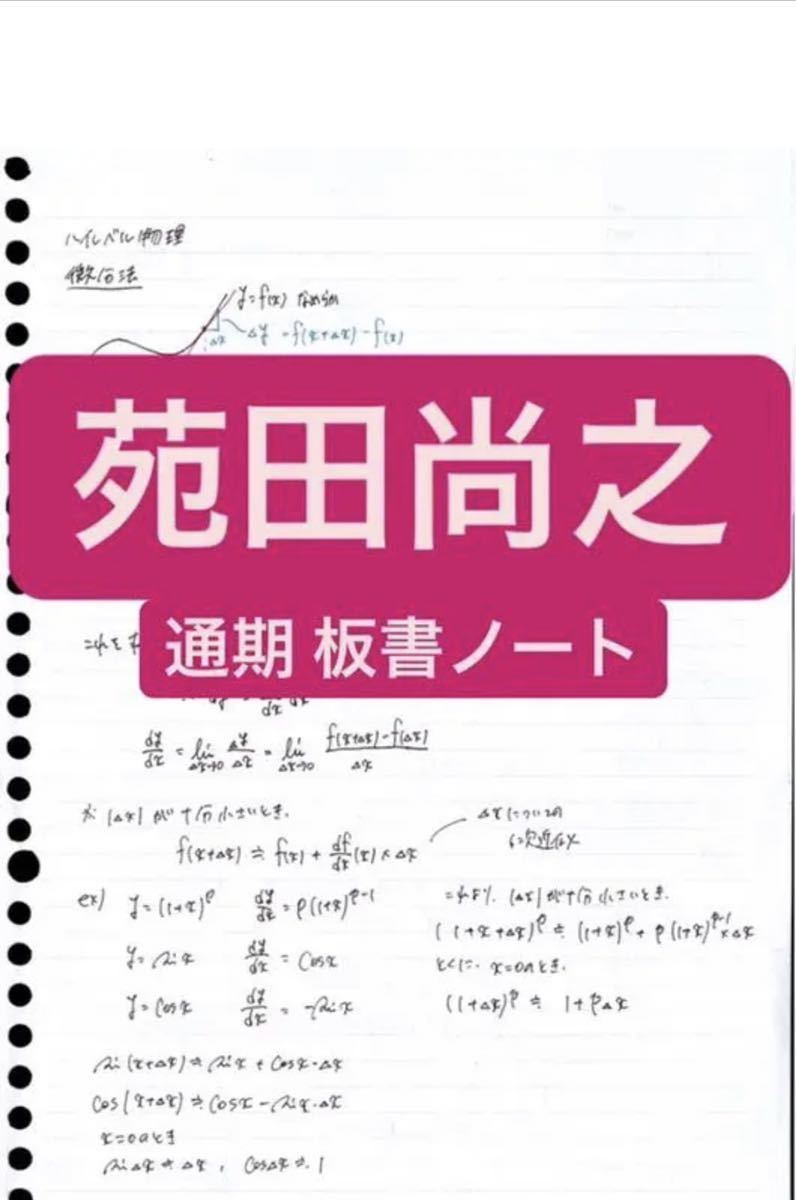 ハイレベル物理
微分法
y=f(x) なめらか
Δx Δy =f(x+Δx)-f(x)
苑田尚之
通期 板書ノート
これを
dy/dx = lim Δx→0 Δy/Δx = lim Δx→0 f(x+Δx)-f(Δx)/Δx
※ |Δx| が十分小さいとき、
Δxについての
1次近似
f(x+Δx) ≒ f(x) + df/dx (x) × Δx
ex) y=(1+x)^p dy/dx = p(1+x)^p-1
y=sin x dy/dx = cos x
y=cos x dy/dx = -sin x
これより、|Δx| が十分小さいとき、
(1+x+Δx)^p ≒ (1+x)^p + p(1+x)^p-1 × Δx
とくに、x=0のとき、
(1+Δx)^p ≒ 1+pΔx
sin(x+Δx) ≒ sin x + cos x・Δx
cos(x+Δx) ≒ cos x - sin x・Δx
x=0のとき
sin Δx ≒ Δx, cos Δx ≒ 1